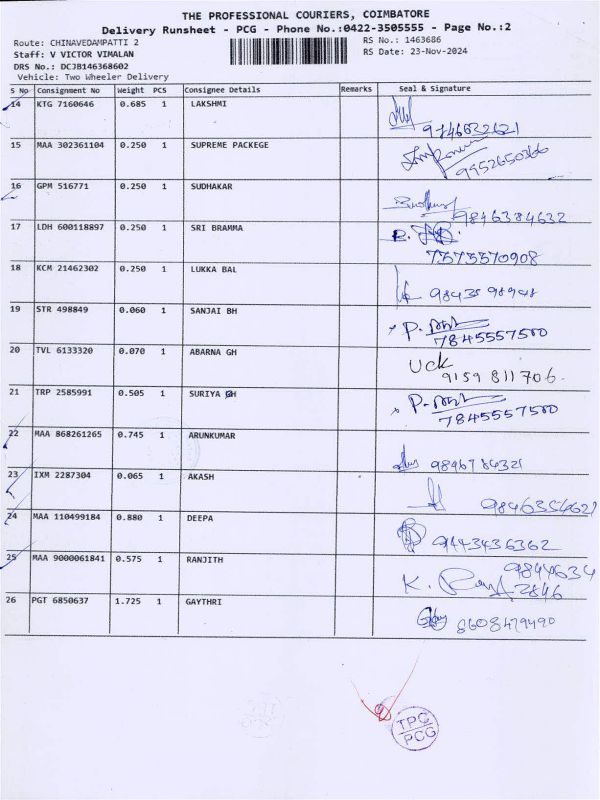 THE PROFESSIONAL COURIERS, COIMBATORE
Delivery Runsheet - PCG - Phone No.:0422-3505555 - Page No.:2
Route: CHINAVEDAMPATTI 2 RS No.: 1463686
Staff: V VICTOR VIMALAN RS Date: 23-Nov-2024
DRS No.: DCJB146368602
Vehicle: Two Wheeler Delivery
S No Consignment No Weight PCS Consignee Details Remarks Seal & Signature
14 KTG 7160646 0.685 1 LAKSHMI
9746632621
15 MAA 302361104 0.250 1 SUPREME PACKEGE
9952650366
16 GPM 516771 0.250 1 SUDHAKAR
9846384632
17 LDH 600118897 0.250 1 SRI BRAMMA
7575570908
18 KCM 21462302 0.250 1 LUKKA BAL
98435 98948
19 STR 498849 0.060 1 SANJAI BH
7845557500
20 TVL 6133320 0.070 1 ABARNA GH
UCK
9159 811706.
21 TRP 2585991 0.505 1 SURIYA GH
7845557500
22 MAA 868261265 0.745 1 ARUNKUMAR
9896784321
23 IXM 2287304 0.065 1 AKASH
9846354621
24 MAA 110499184 0.880 1 DEEPA
9443436362
25 MAA 9000061841 0.575 1 RANJITH
9844634
2846
26 PGT 6850637 1.725 1 GAYTHRI
8608479490
TPC
PCG